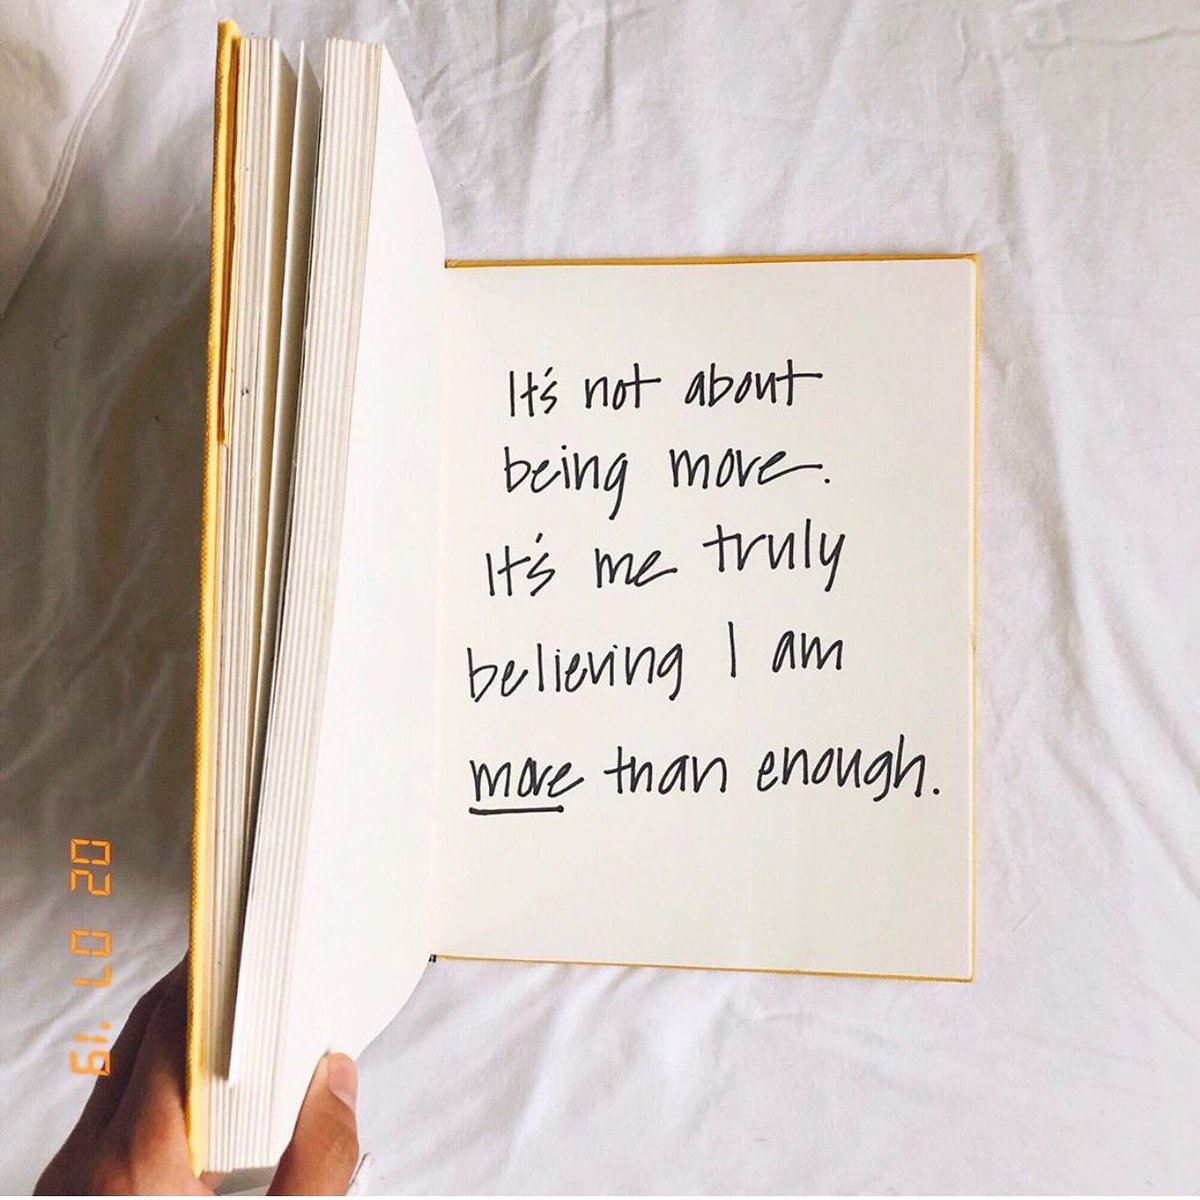 It's not about
being more.
It's me truly
believing I am
more than enough.
02 07 '19